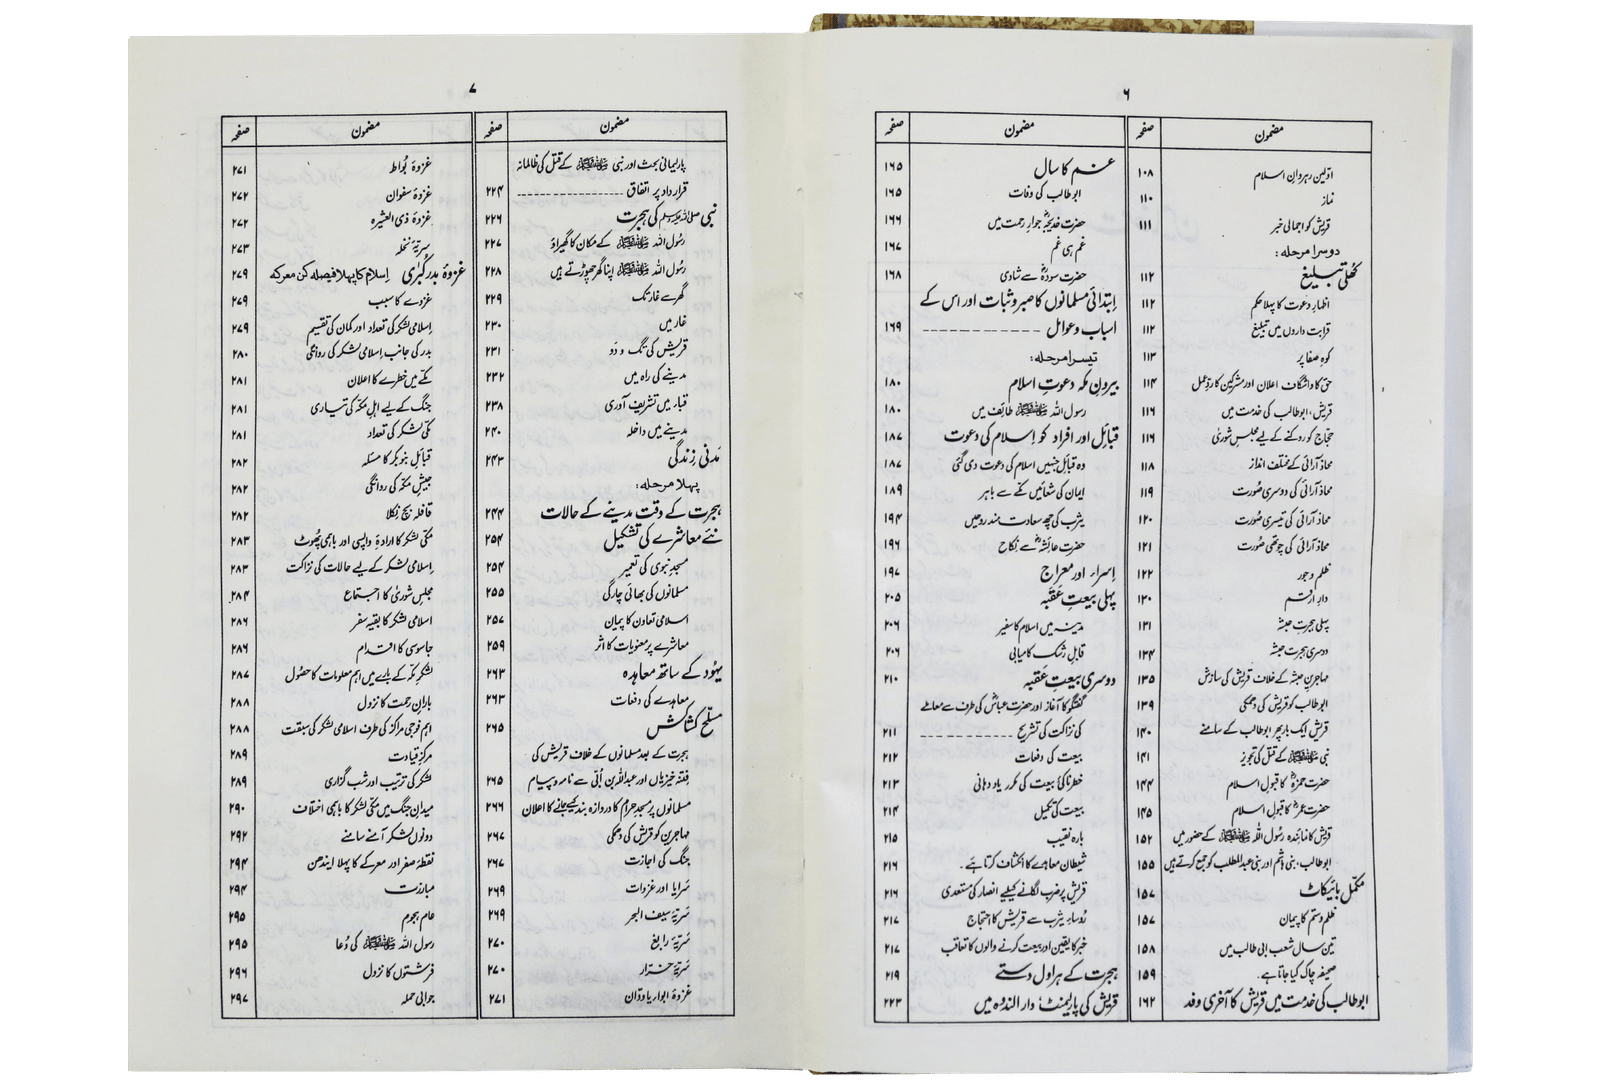 ۶
مضمون صفحہ
اوّلین رہروانِ اسلام ۱۰۸
نماز ۱۱۰
قریش کو اجمالی خبر ۱۱۱
دوسرا مرحلہ:
کھلی تبلیغ ۱۱۲
اظہارِ دعوت کا پہلا حکم ۱۱۲
قرابت داروں میں تبلیغ ۱۱۲
کوہِ صفا پر ۱۱۳
حق کا واشگاف اعلان اور مشرکین کا ردِّ عمل ۱۱۴
قریش، ابوطالب کی خدمت میں ۱۱۶
حجّاج کو روکنے کے لیے مجلسِ شوریٰ ۱۱۶
محاذ آرائی کے مختلف انداز ۱۱۸
محاذ آرائی کی دوسری صُورت ۱۱۹
محاذ آرائی کی تیسری صُورت ۱۲۰
محاذ آرائی کی چوتھی صُورت ۱۲۱
ظلم و جور ۱۲۲
دارِ ارقم ۱۳۰
پہلی ہجرتِ حبشہ ۱۳۱
دوسری ہجرتِ حبشہ ۱۳۴
مہاجرینِ حبشہ کے خلاف قریش کی سازش ۱۳۵
ابوطالب کو قریش کی دھمکی ۱۳۹
قریش ایک بار پھر ابوطالب کے سامنے ۱۴۰
نبی ﷺ کے قتل کی تجویز ۱۴۱
حضرت حمزہؓ کا قبولِ اسلام ۱۴۴
حضرت عمرؓ کا قبولِ اسلام ۱۴۵
قریش کا نمائندہ رسُول اللہ ﷺ کے حضور میں ۱۵۲
ابوطالب، بنی ہاشم اور بنی عبدالمطلب کو جمع کرتے ہیں ۱۵۵
مکمّل بائیکاٹ ۱۵۷
ظلم و ستم کا پیمان ۱۵۷
تین سال شعب ابی طالب میں ۱۵۸
صحیفہ چاک کیا جاتا ہے. ۱۵۹
ابوطالب کی خدمت میں قریش کا آخری وفد ۱۶۲
مضمون صفحہ
غم کا سال ۱۶۵
ابوطالب کی وفات ۱۶۵
حضرت خدیجہؓ جوارِ رحمت میں ۱۶۶
غم ہی غم ۱۶۷
حضرت سودہؓ سے شادی ۱۶۸
اِبتدائی مسلمانوں کا صبر و ثبات اور اس کے
اسباب و عوامل ۱۶۹
تیسرا مرحلہ:
بیرونِ مکہ دعوتِ اسلام ۱۸۰
رسول اللہ ﷺ طائف میں ۱۸۰
قبائل اور افراد کو اِسلام کی دعوت ۱۸۷
وہ قبائل جنہیں اسلام کی دعوت دی گئی ۱۸۷
ایمان کی شعائیں مکے سے باہر ۱۸۹
یثرب کی چھ سعادت مند روحیں ۱۹۴
حضرت عائشہؓ سے نکاح ۱۹۶
اِسراء اور معراج ۱۹۷
پہلی بیعتِ عَقَبہ ۲۰۵
مدینہ میں اسلام کا سفیر ۲۰۶
قابلِ رشک کامیابی ۲۰۶
دوسری بیعتِ عَقبہ ۲۱۰
گفتگو کا آغاز اور حضرت عباسؓ کی طرف سے معاملے
کی نزاکت کی تشریح ۲۱۱
بیعت کی دفعات ۲۱۲
خطرناکیٔ بیعت کی مکرر یاد دہانی ۲۱۳
بیعت کی تکمیل ۲۱۴
بارہ نقیب ۲۱۵
شیطان معاہدے کا انکشاف کرتا ہے. ۲۱۶
قریش پر ضرب لگانے کیلیے انصار کی مستعدی ۲۱۶
رُوساءِ یثرب سے قریش کا احتجاج ۲۱۷
خبر کا یقین اور بیعت کرنے والوں کا تعاقب ۲۱۷
ہجرت کے ہراول دستے ۲۱۹
قریش کی پارلیمنٹ: دار الندوہ میں ۲۲۳
۷
مضمون صفحہ
پارلیمانی بحث اور نبی ﷺ کے قتل کی ظالمانہ
قرار داد پر اتفاق ۲۲۴
نبی صلی اللہ علیہ وسلم کی ہجرت ۲۲۶
رسُول اللہ ﷺ کے مکان کا گھیراؤ ۲۲۷
رسُول اللہ ﷺ اپنا گھر چھوڑتے ہیں ۲۲۸
گھر سے غار تک ۲۲۹
غار میں ۲۳۰
قریش کی تگ و دَو ۲۳۱
مدینے کی راہ میں ۲۳۲
قباء میں تشریف آوری ۲۳۸
مدینے میں داخلہ ۲۴۰
مَدنی زِندگی ۲۴۳
پہلا مرحلہ:
ہجرت کے وقت مدینے کے حالات ۲۴۴
نئے معاشرے کی تشکیل ۲۵۴
مسجدِ نبوی کی تعمیر ۲۵۴
مسلمانوں کی بھائی چارگی ۲۵۵
اسلامی تعاون کا پیمان ۲۵۷
معاشرے پر معنویات کا اثر ۲۵۹
یہُود کے ساتھ معاہدہ ۲۶۳
معاہدے کی دفعات ۲۶۳
مسلّح کشاکش ۲۶۵
ہجرت کے بعد مسلمانوں کے خلاف قریش کی
فتنہ خیزیاں اور عبداللہ بن اُبی سے نامہ و پیام ۲۶۵
مسلمانوں پر مسجدِ حرام کا دروازہ بند کیے جانے کا اعلان ۲۶۶
مہاجرین کو قریش کی دھمکی ۲۶۷
جنگ کی اجازت ۲۶۷
سَرایا اور غزوات ۲۶۹
سَریّہ سیف البحر ۲۶۹
سَریّہ رابغ ۲۷۰
سَریّہ خرّار ۲۷۰
غزوۂ ابواء یا ودّان ۲۷۱
مضمون صفحہ
غزوۂ بُواط ۲۷۱
غزوۂ سفوان ۲۷۲
غزوۂ ذی العشیرہ ۲۷۲
سریّہ نخلہ ۲۷۳
غزوۂ بدر کُبریٰ اِسلام کا پہلا فیصلہ کن معرکہ ۲۷۹
غزوے کا سبب ۲۷۹
اِسلامی لشکر کی تعداد اور کمان کی تقسیم ۲۷۹
بدر کی جانب اِسلامی لشکر کی روانگی ۲۸۰
مکے میں خطرے کا اعلان ۲۸۱
جنگ کے لیے اہلِ مکہ کی تیاری ۲۸۱
مکّی لشکر کی تعداد ۲۸۱
قبائل بنو بکر کا مسئلہ ۲۸۲
جیشِ مکہ کی روانگی ۲۸۲
قافلہ بچ نِکلا ۲۸۲
مکّی لشکر کا ارادۂ واپسی اور باہمی پھُوٹ ۲۸۳
اِسلامی لشکر کے لیے حالات کی نزاکت ۲۸۳
مجلسِ شوریٰ کا اجتماع ۲۸۴
اسلامی لشکر کا بقیہ سفر ۲۸۶
جاسوسی کا اقدام ۲۸۶
لشکرِ مکہ کے بارے میں اہم معلومات کا حصُول ۲۸۷
بارانِ رحمت کا نزول ۲۸۸
اہم فوجی مراکز کی طرف اسلامی لشکر کی سبقت ۲۸۸
مرکزِ قیادت ۲۸۹
لشکر کی ترتیب اور شب گزاری ۲۸۹
میدانِ جنگ میں مکّی لشکر کا باہمی اختلاف ۲۹۰
دونوں لشکر آمنے سامنے ۲۹۲
نقطۂ صفر اور معرکے کا پہلا ایندھن ۲۹۴
مبارزت ۲۹۴
عام ہجوم ۲۹۵
رسول اللہ ﷺ کی دُعا ۲۹۵
فرشتوں کا نزول ۲۹۶
جوابی حملہ ۲۹۷